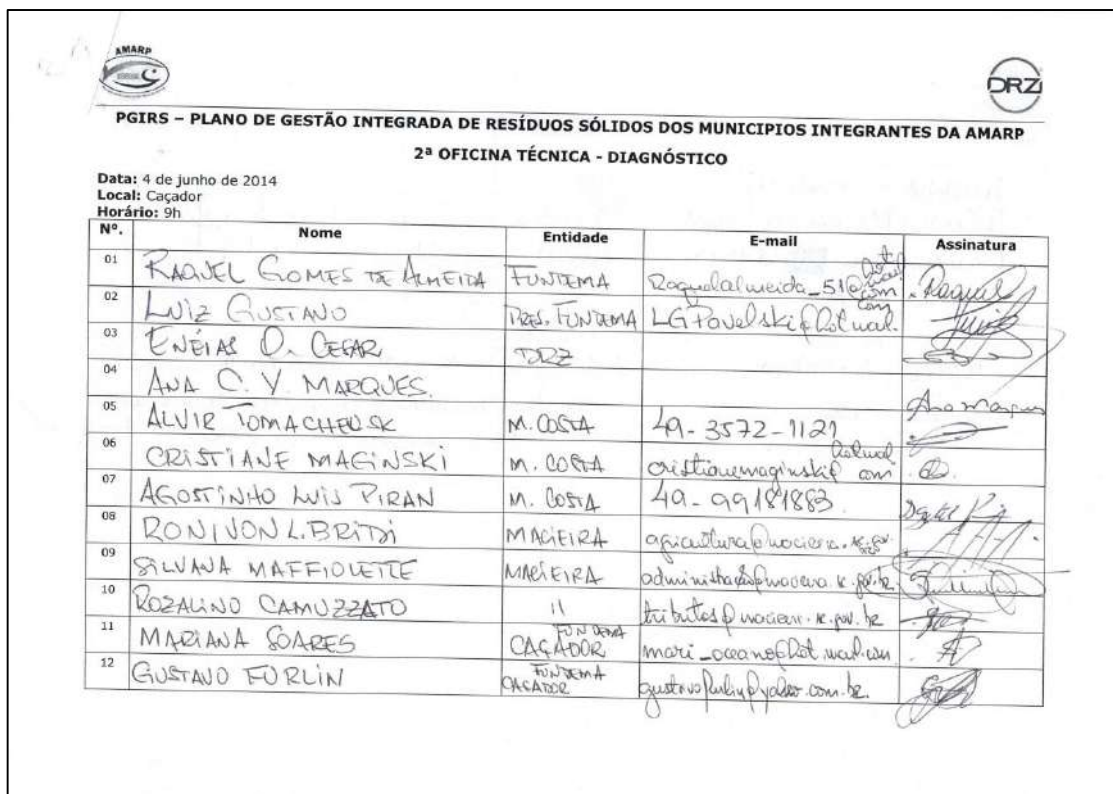 AMARP
DRZ
PGIRS – PLANO DE GESTÃO INTEGRADA DE RESÍDUOS SÓLIDOS DOS MUNICIPIOS INTEGRANTES DA AMARP
2ª OFICINA TÉCNICA - DIAGNÓSTICO
Data: 4 de junho de 2014
Local: Caçador
Horário: 9h
Nº. Nome Entidade E-mail Assinatura
01 RAQUEL GOMES DE ALMEIDA FUNDEMA Raquelalmeida_51@hotmail.com Raquel
02 LUIZ GUSTAVO PRES. FUNDEMA LGPavelski@hotmail.com
03 ENÉIAS O. CESAR DRZ
04 ANA C. V. MARQUES. Ana Marques
05 ALVIR TOMACHEUSK M. COSTA 49-3572-1121
06 CRISTIANE MAGINSKI M. COSTA cristianemaginski@hotmail.com
07 AGOSTINHO LUIS PIRAN M. COSTA 49-99181883
08 RONIVON L. BRIDI MACIEIRA agricultura@macieira.sc.gov.br
09 SILVANA MAFFIOLETTE MACIEIRA administracao@macieira.sc.gov.br
10 ROZALINO CAMUZZATO 11 tributos@macieira.sc.gov.br
11 MARIANA SOARES FUNDEMA CAÇADOR mari_oceano@hotmail.com
12 GUSTAVO FURLIN FUNDEMA CAÇADOR gustavofurlin@yahoo.com.br.